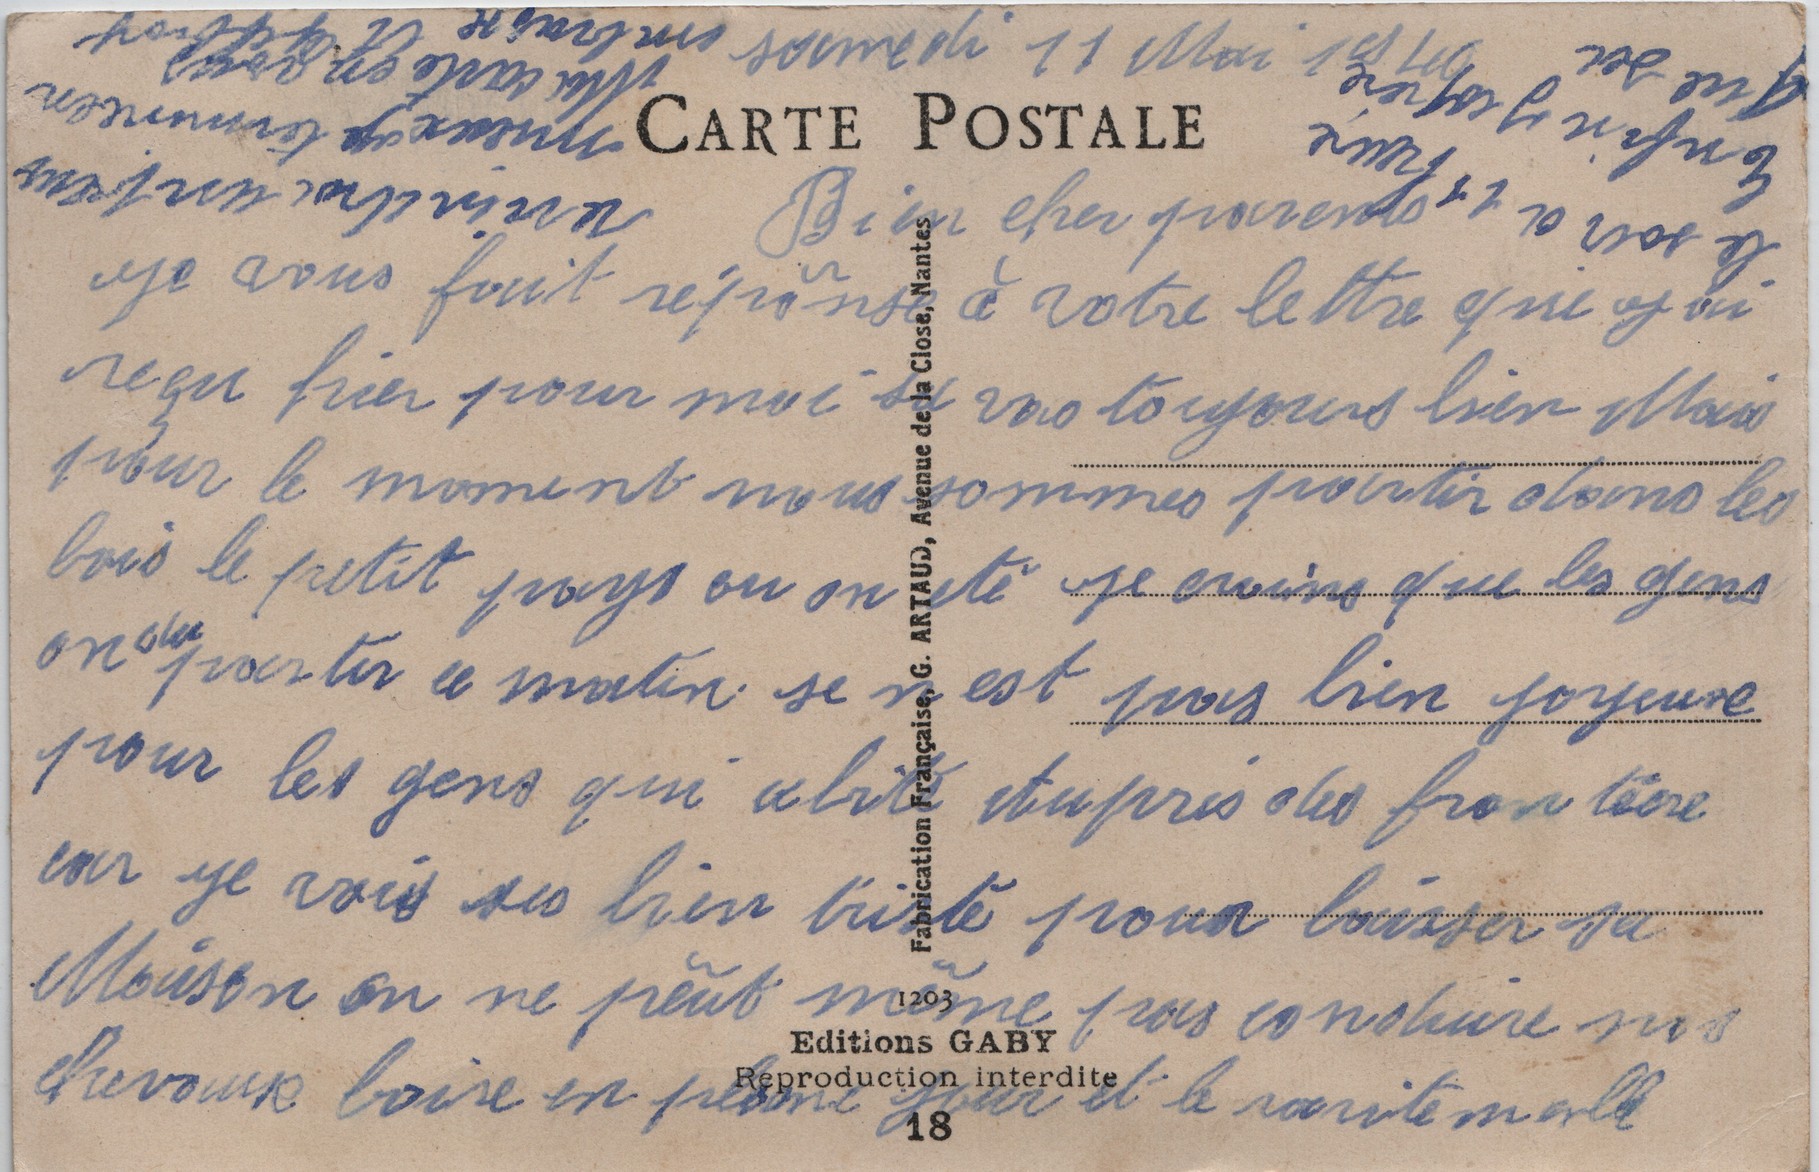 samedi 11 Mai 1940
CARTE POSTALE
Bien cher parents
je vous fait réponse à votre lettre que j ai
reçu hier pour moi sa vas toujours bien Mais
pour le moment nous sommes partir dans les
bois le petit pays ou on été je crains que les gens
on du partir ce matin. se n est pas bien joyeuxe
pour les gens qui abité Aupris des frontière
car je vois ses bien tristé pour laisser sa
Maison on ne peut même pas conduire nos
chevauxe boire en pleine jour et le ravitemalle
le soir a 11
Enfin J espère
que sa
viendra un jour
mieuxe ja termineèn
Ma carte en vous
embrasse
Fabrication Française, G. ARTAUD, Avenue de la Close, Nantes
1203
Editions GABY
Reproduction interdite
18